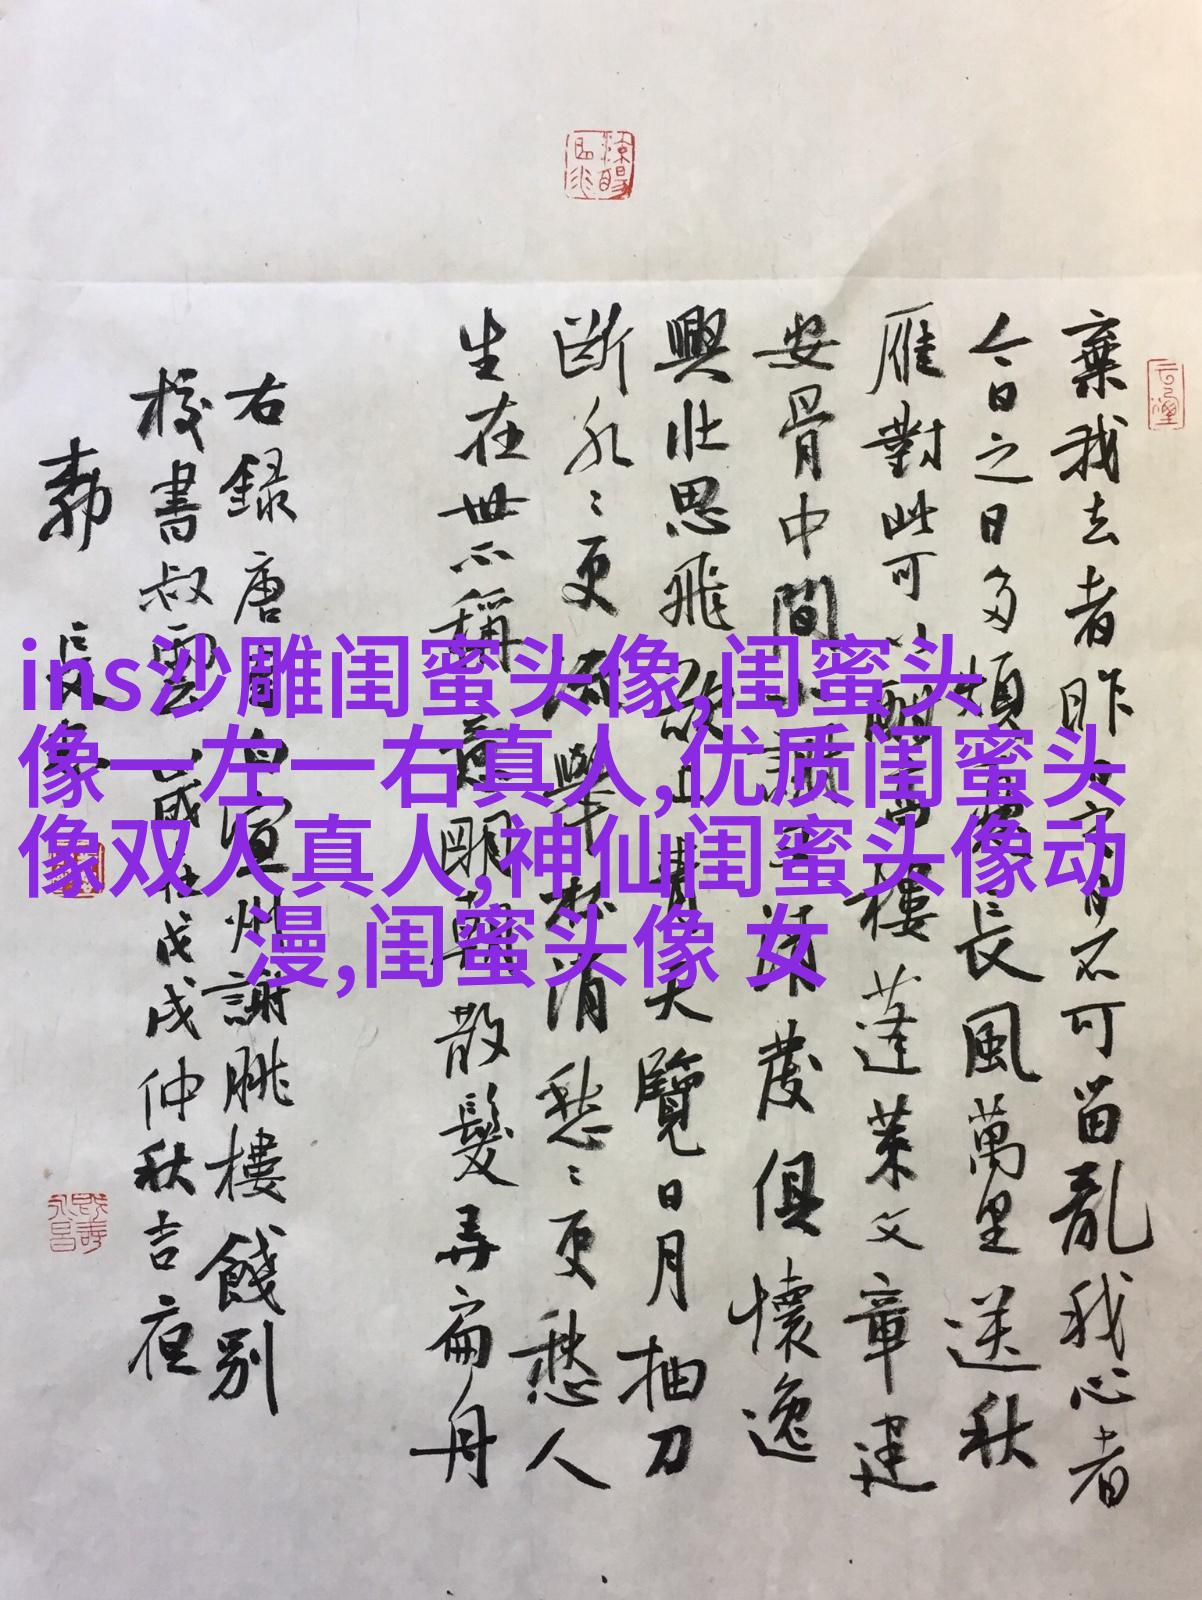 棄我去者昨日之日不可留亂我心者
今日之日多煩憂長風萬里送秋
雁對此可以酣高樓蓬萊文章建
安骨中間小謝又清發俱懷逸
興壯思飛欲上青天覽日月抽刀
斷水水更流舉杯消愁愁更愁人
生在世不稱意明朝散髮弄扁舟
右錄唐李白宣州謝朓樓餞別
校書叔雲
戊戌仲秋吉夜
ins沙雕闺蜜头像,闺蜜头
像一左一右真人,优质闺蜜头
像双人真人,神仙闺蜜头像动
漫,闺蜜头像 女